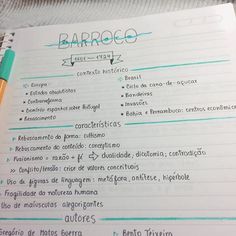 BARROCO
contexto histórico
▷ Europa
• Estados absolutistas
• Contrarreforma
• Domínio espanhol sobre Portugal
• Renascimento
▷ Brasil
• Ciclo da cana-de-açúcar
• Bandeiras
• Invasões
• Bahia e Pernambuco: centros econômicos
características
▷ Rebuscamento da forma: cultismo
▷ Rebuscamento do conteúdo: conceptismo
▷ Fusionismo → razão + fé ⟹ dualidade, dicotomia, contradição
>> Conflito/tensão: crise de valores conceituais
▷ Uso de figuras de linguagem: metáfora, antítese, hipérbole
Fragilidade da natureza humana
Uso de maiúsculas alegorizantes
autores
Gregório de Matos Guerra
Bento Teixeira